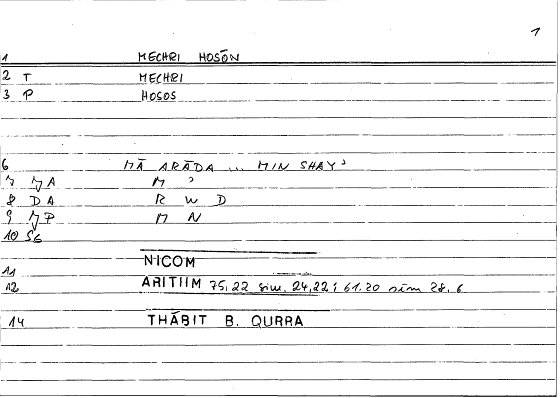 1
1 MECHRI HOSŌN
2 T MECHRI
3 P HOSOS
6 MĀ ARĀDA ... MIN SHAY'
7 MA M '
8 DA R W D
9 MP M N
10 SG
NICOM
11
12 ARITIIM 75,22 sim. 24,22; 61.20 sim 28,6
14 THĀBIT B. QURRA